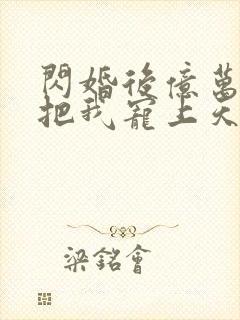 閃婚後億萬
把我寵上天
梁銘會